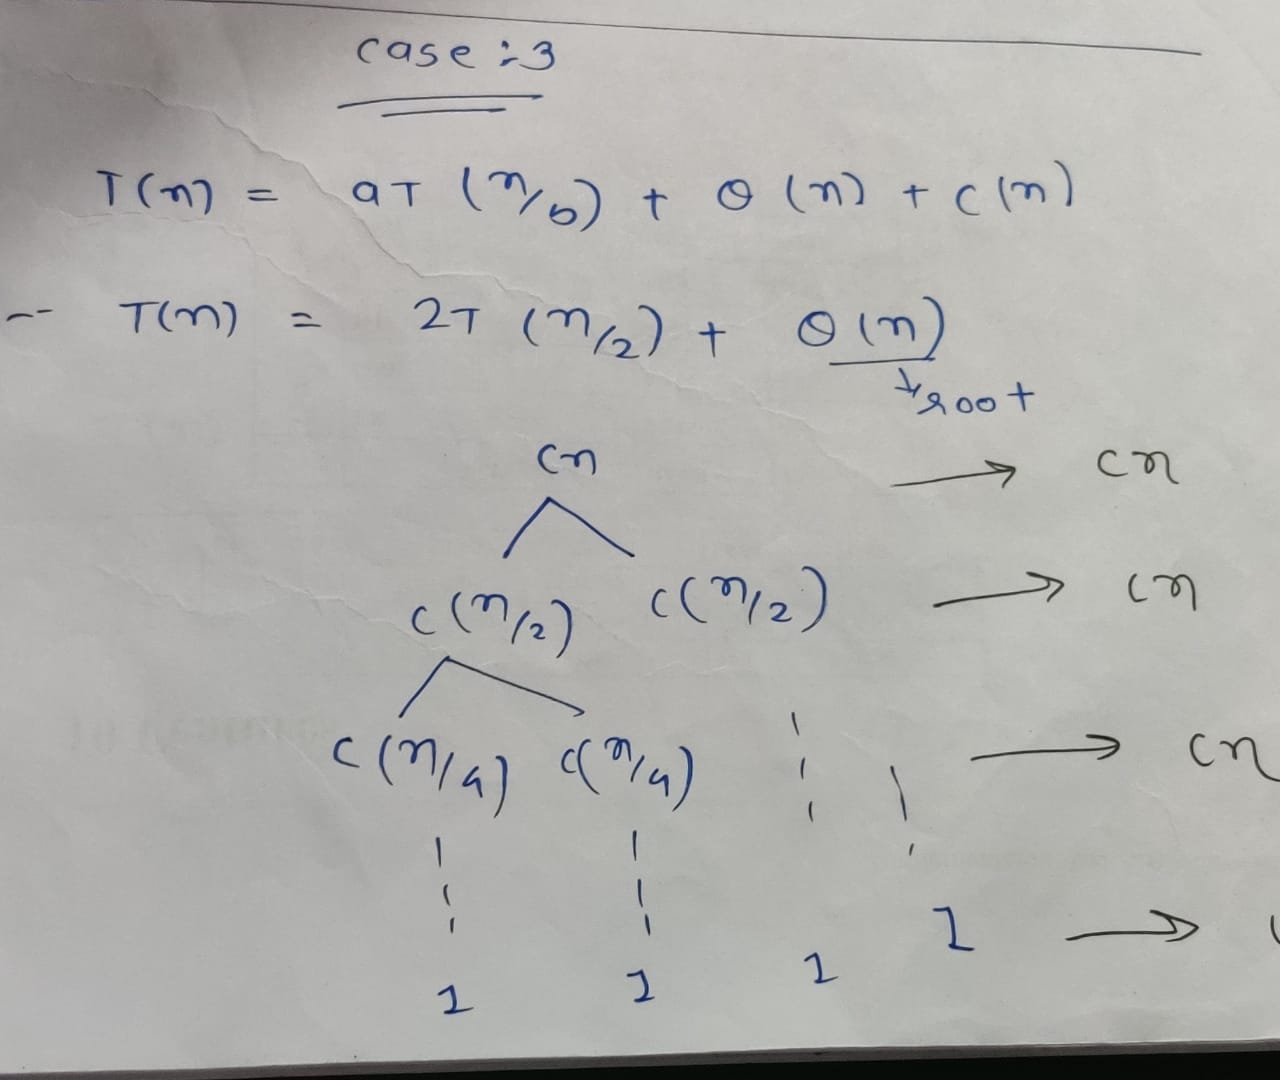 case :- 3
T(n) = aT (n/b) + θ (n) + c(n)
T(n) = 2T (n/2) + θ (n)
root
cn → cn
c(n/2) c(n/2) → cn
c(n/4) c(n/4) → cn
1 →
1 1 1